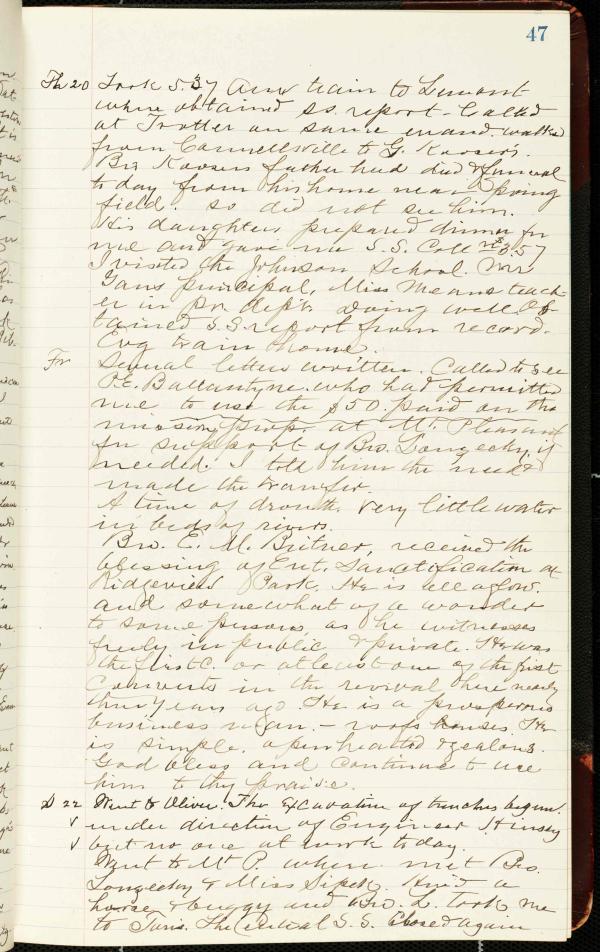 47
Th 20 Took 5.37 A.M. train to Lemont
where obtained S.S. report. Called
at Trotter on same errand. Walked
from Connellsville to G. Kooser's.
Bro Koosers father had died & funeral
to day from his home near Spring
field. so did not see him.
His daughters prepared dinner for
me and gave me S.S. Coll 3.57
I visited the Johnson School. Mr
Gans principal, Miss Means teach-
er in pr. dept. doing well. Ob-
tained S.S. report from record.
Evg train home.
Fr Several letters written. Called to see
P.E. Ballantyne who had permitted
me to use the $50. paid on the
mission prop. at Mt. Pleasant
for support of Bro. Longecky, if
needed. I told him the need &
made the transfer.
A time of drouth. Very little water
in beds of rivers.
Bro. E. M. Bitner, received the
blessing of Ent. Sanctification at
Ridgeview Park. He is all aglow.
and somewhat of a wonder
to some persons, as he witnesses
freely in public & private. He was
the first C. or at least one of the first
converts in the revival here nearly
three years ago. He is a prosperous
business man. - roofs houses. He
is simple, openhearted & zealous.
God bless and continue to use
him to thy praise.
S 22 Went to Oliver. The excavation of trenches begun.
v under direction of Engineer Kinsey
v but no one at work to day.
Went to Mt P where met Bro.
Longecky & Miss Sipek. Hired a
horse & buggy and Bro. L. took me
to Tarrs. The S.S. closed again